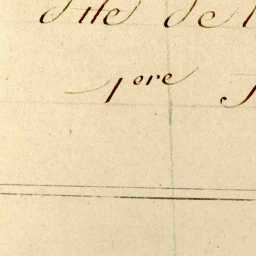 dite de
1ere